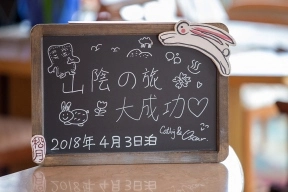 山陰の旅
大成功♡
2018年4月3日泊